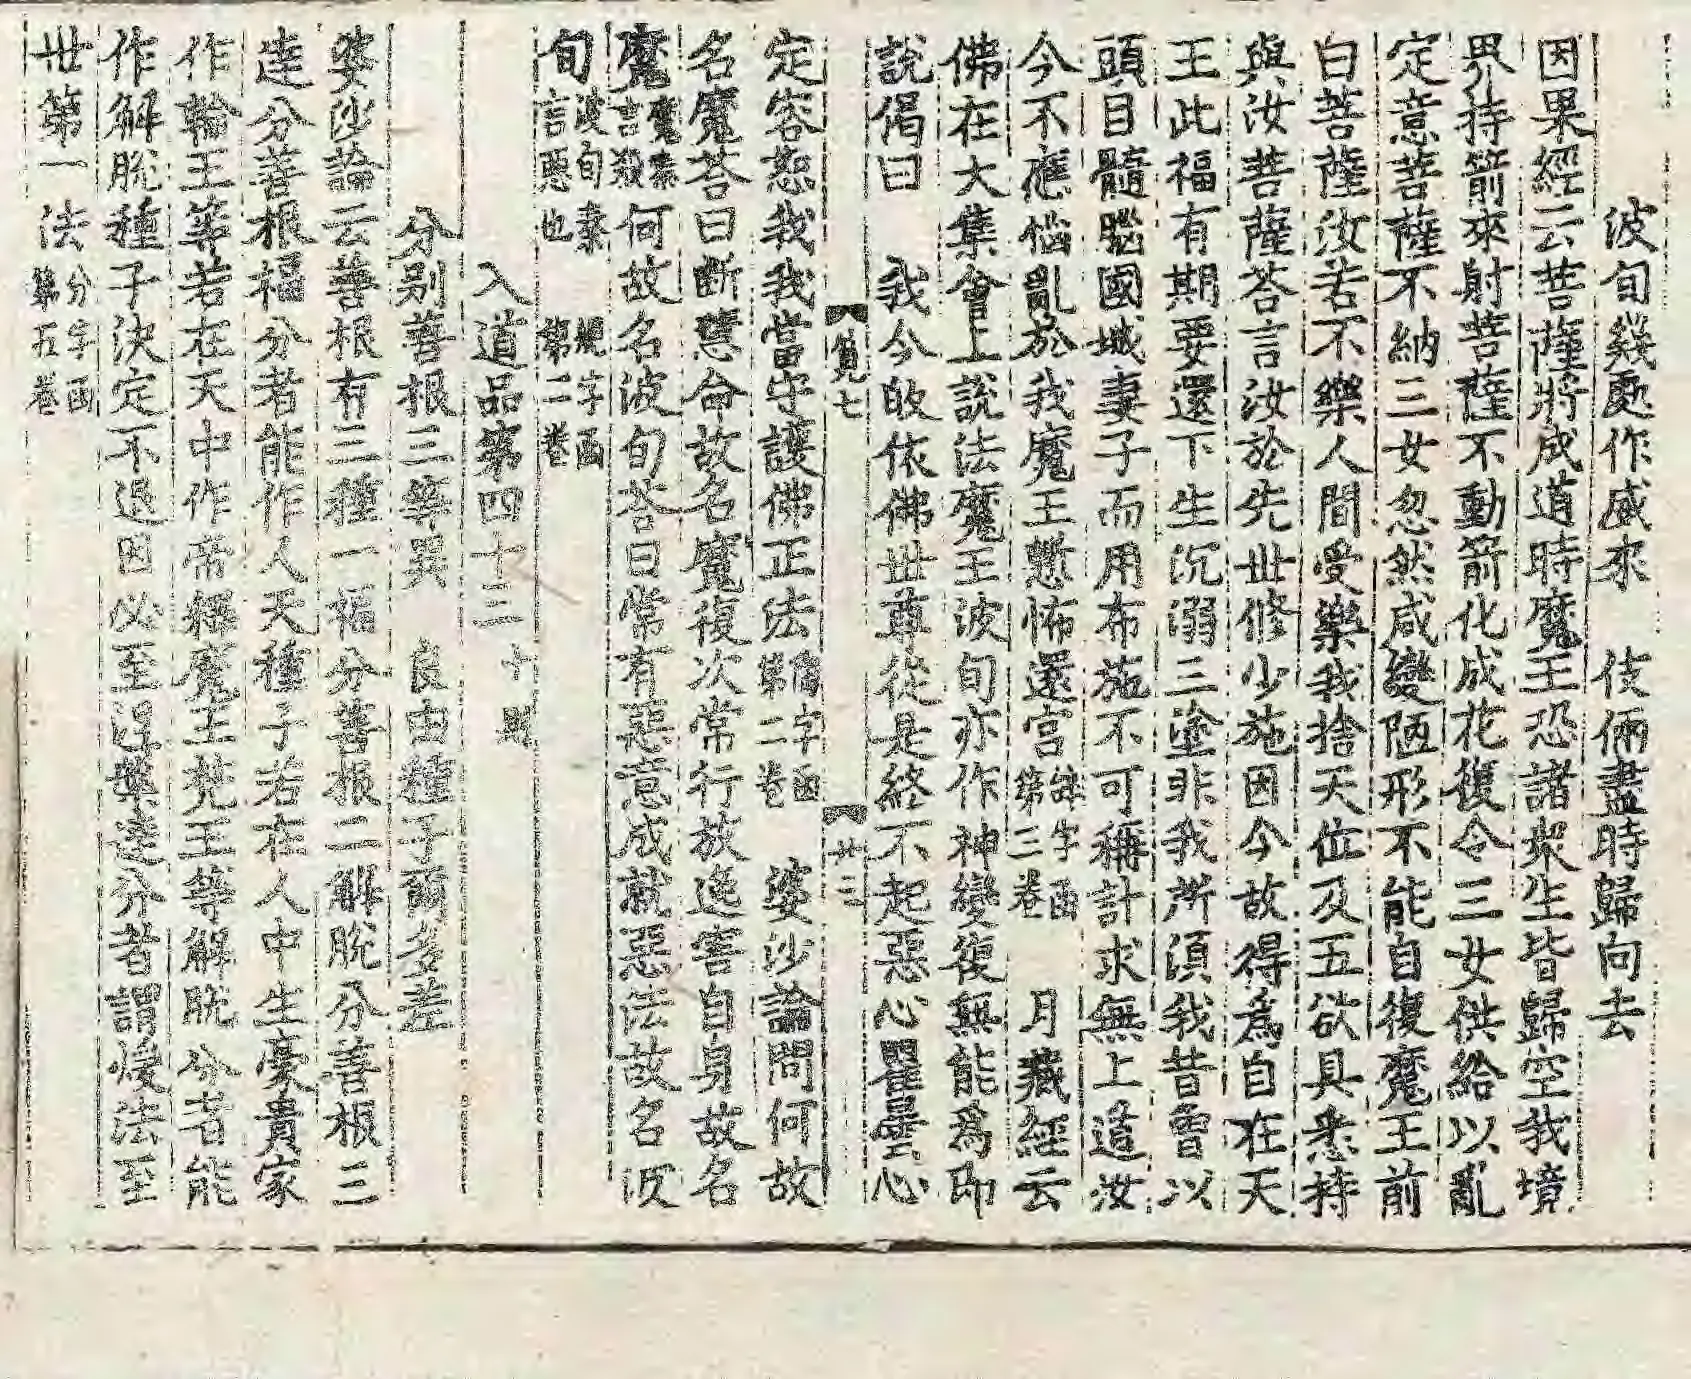 波旬幾處作威來　伎倆盡時歸向去
因果經云菩薩將成道時魔王恐諸衆生皆歸空我境
界持箭來射菩薩不動箭化成花復令三女供給以亂
定意菩薩不納三女忽然咸變陋形不能自復魔王前
白菩薩汝若不樂人間受樂我捨天位及五欲具悉持
與汝菩薩荅言汝於先世修少施因今故得爲自在天
王此福有期要還下生沉溺三塗非我所須我昔曾以
頭目髓腦國城妻子而用布施不可稱計求無上道汝
今不應惱亂於我魔王慙怖還宮字函第三卷　月藏經云
佛在大集會上說法魔王波旬亦作神變復無能爲即
說偈曰　我今敀依佛世尊從是終不起惡心瞿曇心
覧七　廿三
定容恕我我當守護佛正法字函第二卷　婆沙論問何故
名魔荅曰斷慧命故名魔復次常行放逸害自身故名
魔魔素言殺何故名波旬荅曰常有惡意成就惡法故名波
旬波旬素言惡也　規字函第二卷
入道品第四十三十則
分別善根三等異　良由種子爾多差
婆沙論云善根有三種一福分善根二解脫分善根三
達分善根福分者能作人天種子若在人中生豪貴家
作輪王等若在天中作帝釋魔王梵王等解脫分者能
作解脫種子決定不退因必至涅槃達分者謂煖法至
世第一法分字函第五卷